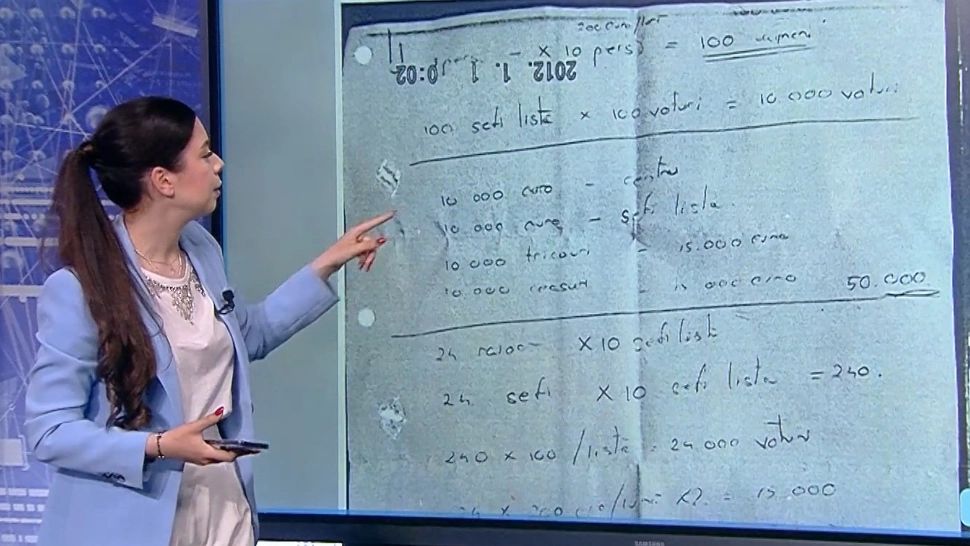 200 euro/luni
x 10 pers = 100 oameni
2012. 1. 1
100 sefi listă x 100 voturi = 10.000 voturi
10 000 euro - centru
10 000 euro - sefi lista.
10 000 tricouri - 15.000 euro
10.000 - 000 euro 50.000
24 x 10 sefi listă
24 sefi x 10 sefi lista = 240.
240 x 100 /listă = 24 000 voturi
= 15 000
SAMSUNG